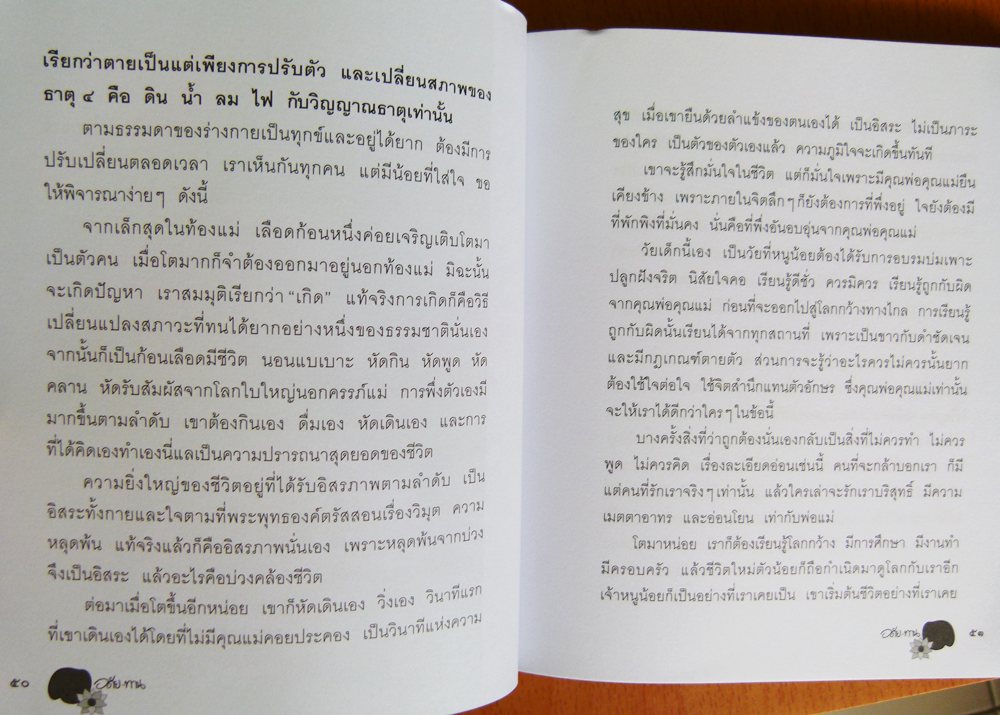 เรียกว่าตายเป็นแต่เพียงการปรับตัว และเปลี่ยนสภาพของ
ธาตุ ๔ คือ ดิน น้ำ ลม ไฟ กับวิญญาณธาตุเท่านั้น
ตามธรรมดาของร่างกายเป็นทุกข์และอยู่ได้ยาก ต้องมีการ
ปรับเปลี่ยนตลอดเวลา เราเห็นกันทุกคน แต่มีน้อยที่ใส่ใจ ขอ
ให้พิจารณาง่ายๆ ดังนี้
จากเล็กสุดในท้องแม่ เลือดก้อนหนึ่งค่อยเจริญเติบโตมา
เป็นตัวคน เมื่อโตมากก็จำต้องออกมาอยู่นอกท้องแม่ มิฉะนั้น
จะเกิดปัญหา เราสมมุติเรียกว่า “เกิด” แท้จริงการเกิดก็คือวิธี
เปลี่ยนแปลงสภาวะที่ทนได้ยากอย่างหนึ่งของธรรมชาตินั่นเอง
จากนั้นก็เป็นก้อนเลือดมีชีวิต นอนแบเบาะ หัดกิน หัดพูด หัด
คลาน หัดรับสัมผัสจากโลกใบใหญ่นอกครรภ์แม่ การพึ่งตัวเองมี
มากขึ้นตามลำดับ เขาต้องกินเอง ดื่มเอง หัดเดินเอง และการ
ที่ได้คิดเองทำเองนี่แลเป็นความปรารถนาสุดยอดของชีวิต
ความยิ่งใหญ่ของชีวิตอยู่ที่ได้รับอิสรภาพตามลำดับ เป็น
อิสระทั้งกายและใจตามที่พระพุทธองค์ตรัสสอนเรื่องวิมุต ความ
หลุดพ้น แท้จริงแล้วก็คืออิสรภาพนั่นเอง เพราะหลุดพ้นจากบ่วง
จึงเป็นอิสระ แล้วอะไรคือบ่วงคล้องชีวิต
ต่อมาเมื่อโตขึ้นอีกหน่อย เขาก็หัดเดินเอง วิ่งเอง วินาทีแรก
ที่เขาเดินเองได้โดยที่ไม่มีคุณแม่คอยประคอง เป็นวินาทีแห่งความ
๕๐
สุข เมื่อเขายืนด้วยลำแข้งของตนเองได้ เป็นอิสระ ไม่เป็นภาระ
ของใคร เป็นตัวของตัวเองแล้ว ความภูมิใจจะเกิดขึ้นทันที
เขาจะรู้สึกมั่นใจในชีวิต แต่ก็มั่นใจเพราะมีคุณพ่อคุณแม่ยืน
เคียงข้าง เพราะภายในจิตลึกๆก็ยังต้องการที่พึ่งอยู่ ใจยังต้องมี
ที่พักพิงที่มั่นคง นั่นคือที่พึ่งอันอบอุ่นจากคุณพ่อคุณแม่
วัยเด็กนี้เอง เป็นวัยที่หนูน้อยต้องได้รับการอบรมบ่มเพาะ
ปลูกฝังจริต นิสัยใจคอ เรียนรู้ดีชั่ว ควรมิควร เรียนรู้ถูกกับผิด
จากคุณพ่อคุณแม่ ก่อนที่จะออกไปสู่โลกกว้างทางไกล การเรียนรู้
ถูกกับผิดนั้นเรียนได้จากทุกสถานที่ เพราะเป็นขาวกับดำชัดเจน
และมีกฎเกณฑ์ตายตัว ส่วนการจะรู้ว่าอะไรควรไม่ควรนั้นยาก
ต้องใช้ใจต่อใจ ใช้จิตสำนึกแทนตัวอักษร ซึ่งคุณพ่อคุณแม่เท่านั้น
จะให้เราได้ดีกว่าใครๆในข้อนี้
บางครั้งสิ่งที่ว่าถูกต้องนั่นเองกลับเป็นสิ่งที่ไม่ควรทำ ไม่ควร
พูด ไม่ควรคิด เรื่องละเอียดอ่อนเช่นนี้ คนที่จะกล้าบอกเรา ก็มี
แต่คนที่รักเราจริงๆเท่านั้น แล้วใครเล่าจะรักเราบริสุทธิ์ มีความ
เมตตาอาทร และอ่อนโยน เท่ากับพ่อแม่
โตมาหน่อย เราก็ต้องเรียนรู้โลกกว้าง มีการศึกษา มีงานทำ
มีครอบครัว แล้วชีวิตใหม่ตัวน้อยก็ถือกำเนิดมาดูโลกกับเราอีก
เจ้าหนูน้อยก็เป็นอย่างที่เราเคยเป็น เขาเริ่มต้นชีวิตอย่างที่เราเคย
๕๑